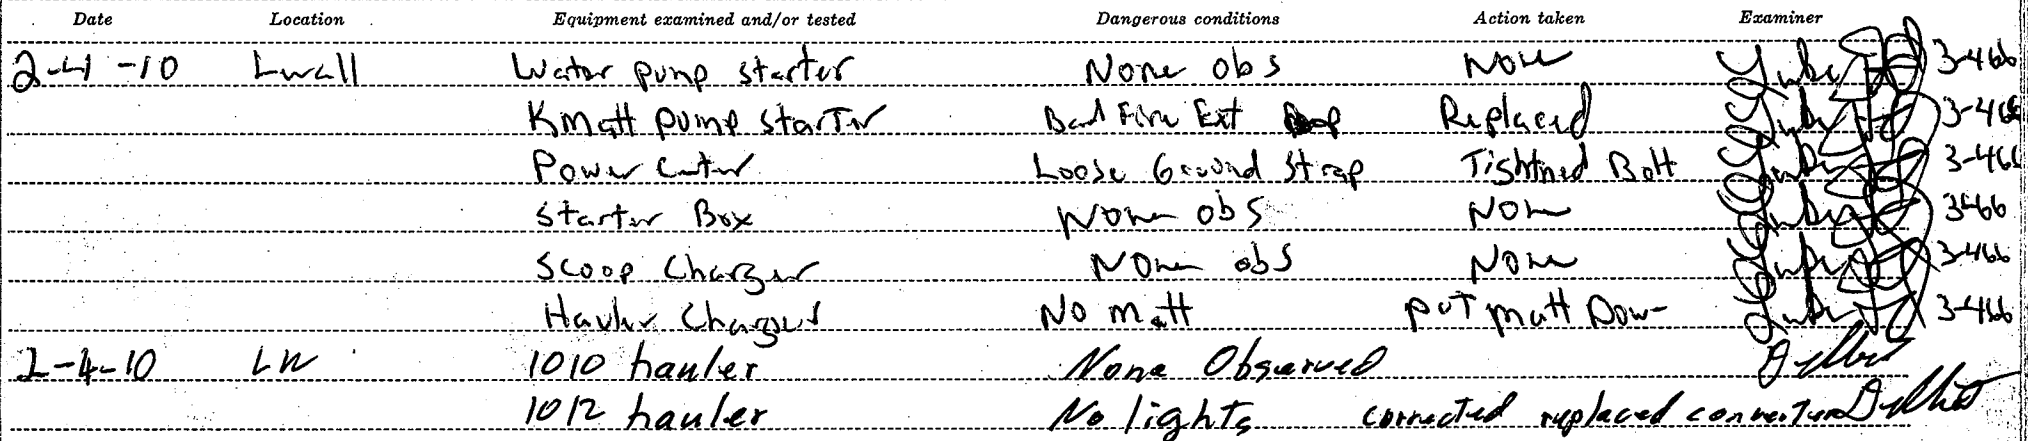 Date Location Equipment examined and/or tested Dangerous conditions Action taken Examiner
2-4-10 Lwall Water pump starter None obs None 3-466
KMatt pump starter Bad Fire Ext Replaced 3-466
Power Center Loose Ground Strap Tightned Bolt 3-466
Starter Box None obs None 3-466
Scoop Charger None obs None 3-466
Hauler Charger No matt put matt Down 3-466
2-4-10 LW 1010 hauler None Observed
1012 hauler No lights corrected replaced converter